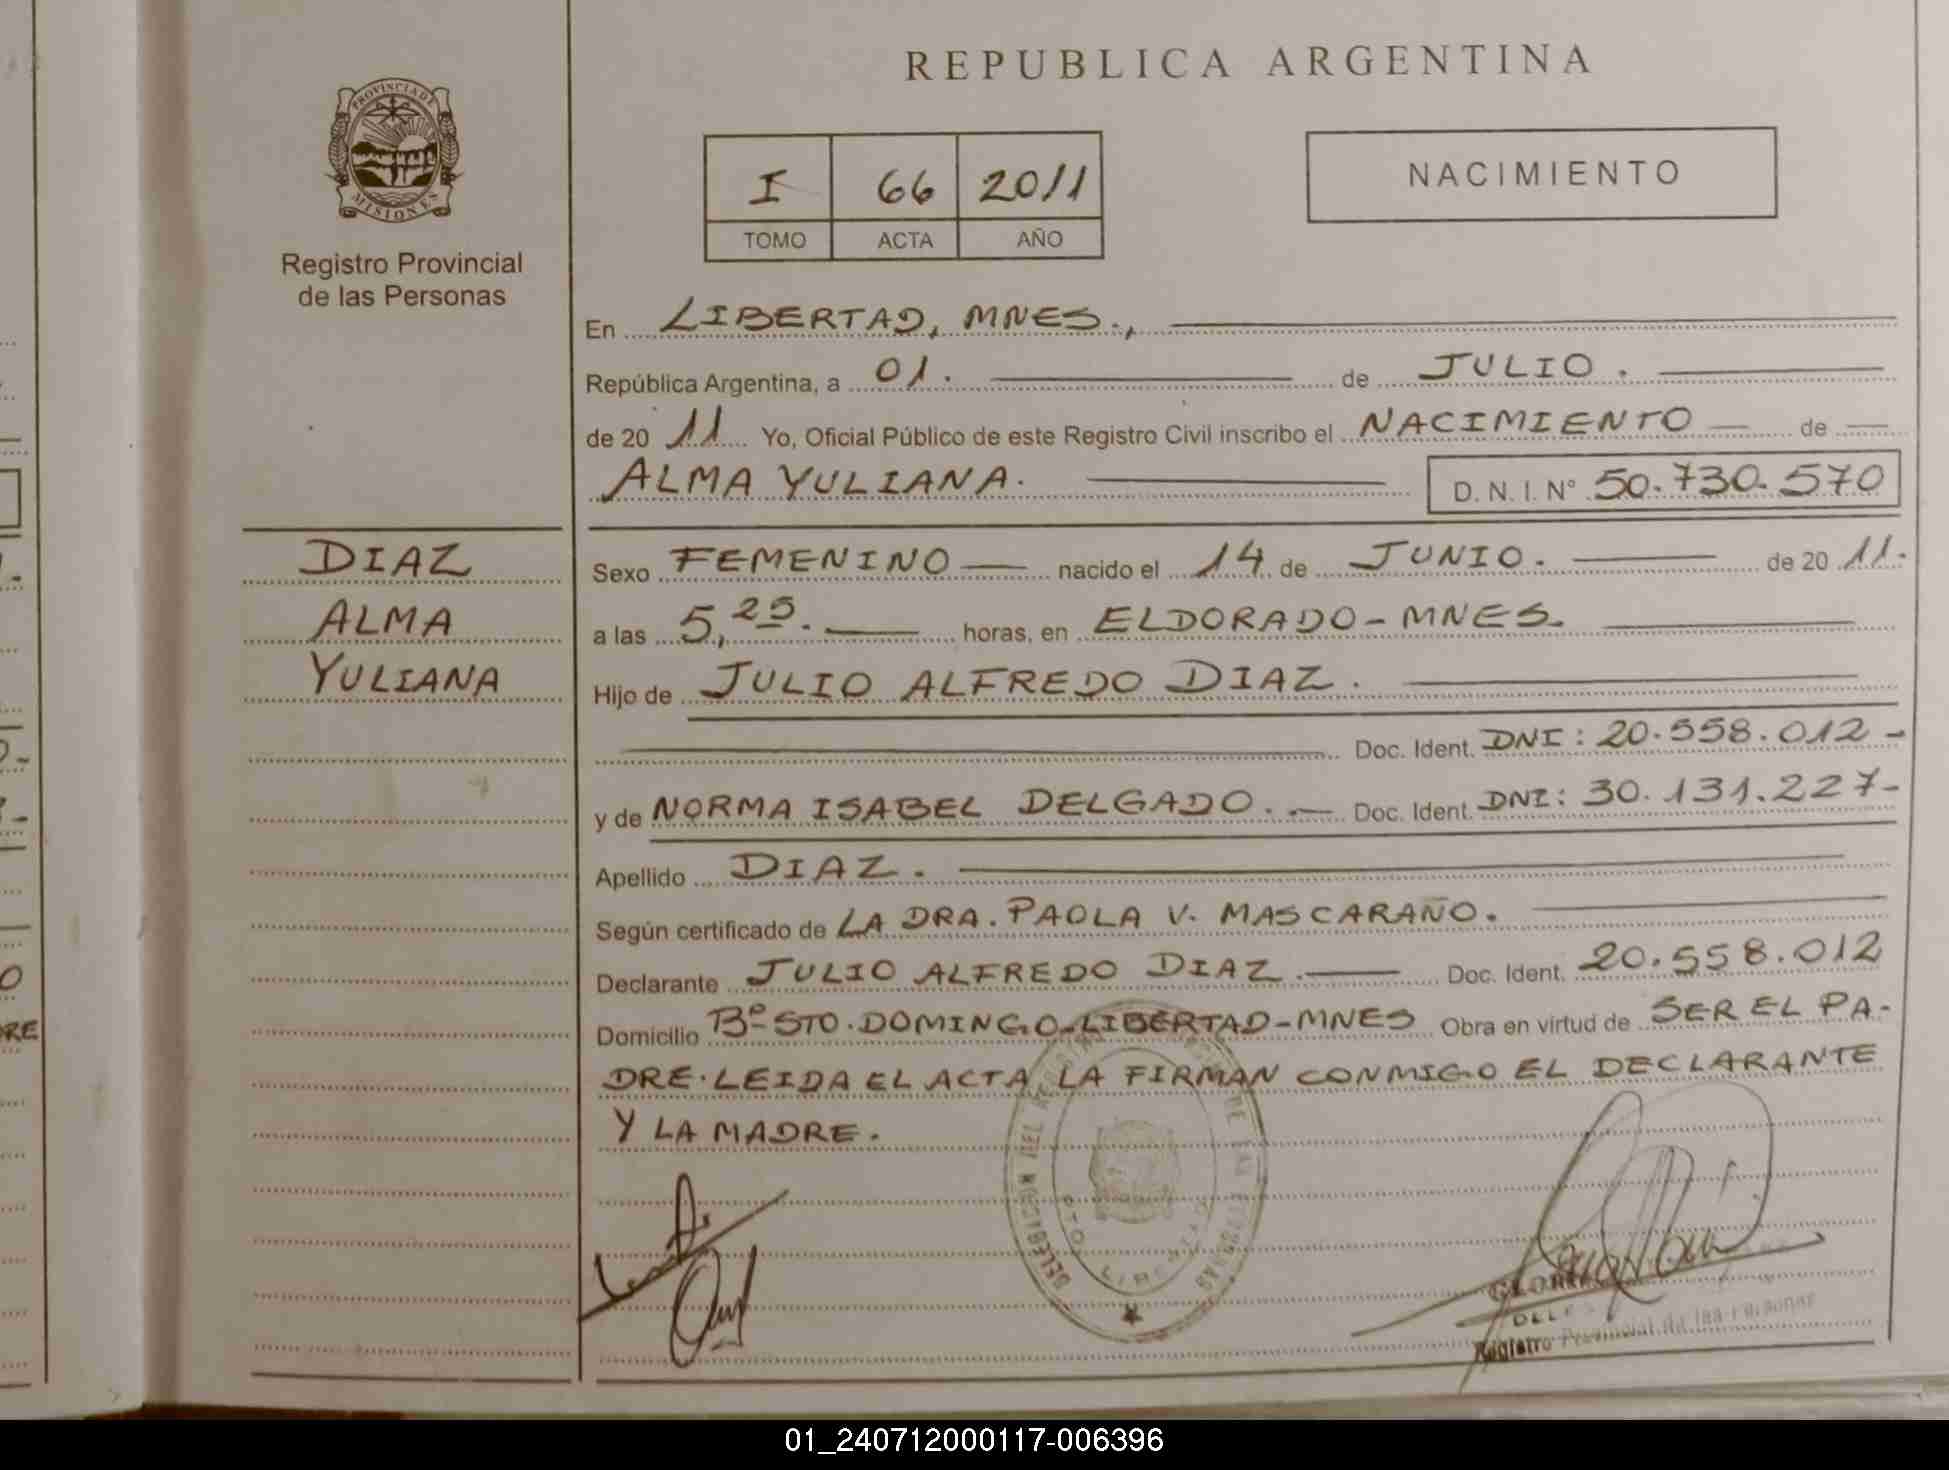 REPUBLICA ARGENTINA
PROVINCIA DE
MISIONES
Registro Provincial
de las Personas
I 66 2011
TOMO ACTA AÑO
NACIMIENTO
En LIBERTAD, MNES.,
República Argentina, a 01. de JULIO.
de 20 11 Yo, Oficial Público de este Registro Civil inscribo el NACIMIENTO de
ALMA YULIANA. D. N. I. N° 50.730.570
DIAZ
ALMA
YULIANA
Sexo FEMENINO nacido el 14 de JUNIO. de 20 11.
a las 5,25. horas, en ELDORADO-MNES.
Hijo de JULIO ALFREDO DIAZ.
Doc. Ident. DNI: 20.558.012-
y de NORMA ISABEL DELGADO. Doc. Ident. DNI: 30.131.227-
Apellido DIAZ.
Según certificado de LA DRA. PAOLA V. MASCARAÑO.
Declarante JULIO ALFREDO DIAZ. Doc. Ident. 20.558.012
Domicilio B° STO. DOMINGO-LIBERTAD-MNES Obra en virtud de SER EL PA-
DRE. LEIDA EL ACTA LA FIRMAN CONMIGO EL DECLARANTE
Y LA MADRE.
DELEGACION DEL REGISTRO DE LAS PERSONAS
PTO. LIBERTAD
Registro Provincial de las Personas
01_240712000117-006396